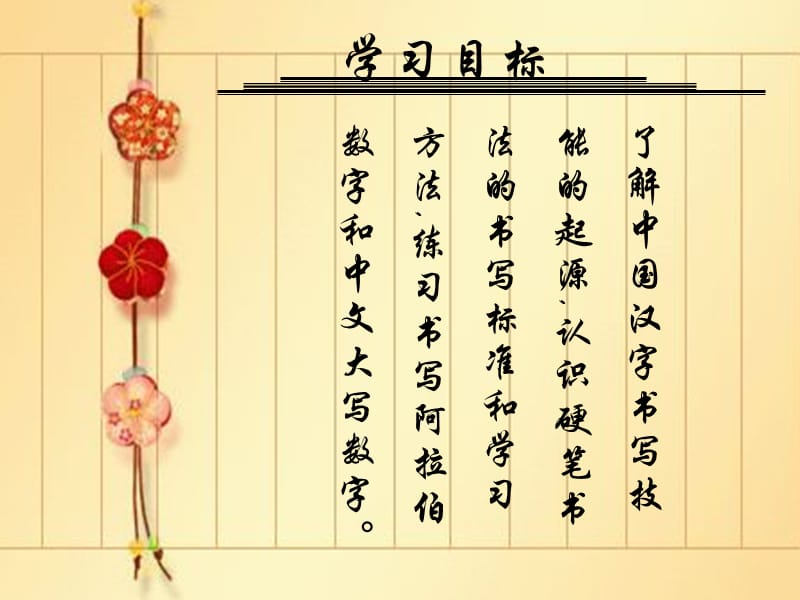 学习目标
了解中国汉字书写技
能的起源、认识硬笔书
法的书写标准和学习
方法、练习书写阿拉伯
数字和中文大写数字。